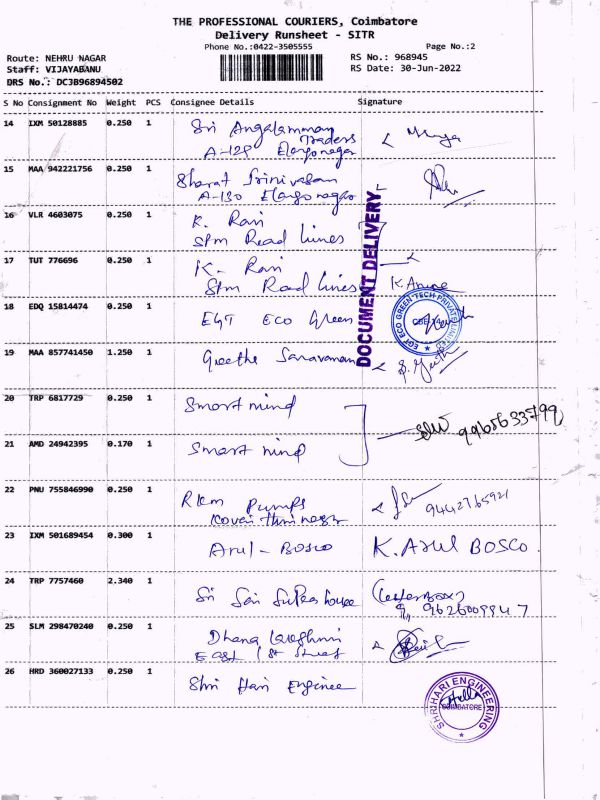 THE PROFESSIONAL COURIERS, Coimbatore
Delivery Runsheet - SITR
Phone No.:0422-3505555
Page No.:2
Route: NEHRU NAGAR
RS No.: 968945
Staff: VIJAYABANU
RS Date: 30-Jun-2022
DRS No.: DC3B96894502
S No Consignment No Weight PCS Consignee Details Signature
14 IXM 50128885 0.250 1 Sri Angalamman
Traders
A-129 Elangonagar
15 MAA 942221756 0.250 1 Bharat Srinivasan
A-130 Elangonagar
16 VLR 4603075 0.250 1 K. Ravi
Spm Road Lines
17 TUT 776696 0.250 1 K. Ravi
Spm Road Lines
DOCUMENT DELIVERY
18 EDQ 15814474 0.250 1 EGT ECO Green
EGT ECO GREEN TECH PRIVATE LIMITED
19 MAA 857741450 1.250 1 Geetha Saravanan
20 TRP 6817729 0.250 1 Smart mind
21 AMD 24942395 0.170 1 Smart mind
22 PNU 755846990 0.250 1 RKM Pumps
9442765921
23 IXM 501689454 0.300 1 Arul - Bosco K. Arul BOSCO.
24 TRP 7757460 2.340 1 Sri Sai
(Letter Box)
25 SLM 298470240 0.250 1 Dhana Lakshmi
East 1st Street
26 HRD 360027133 0.250 1 Shri Hari Enginee
SHRIHARI ENGINEERING
COIMBATORE